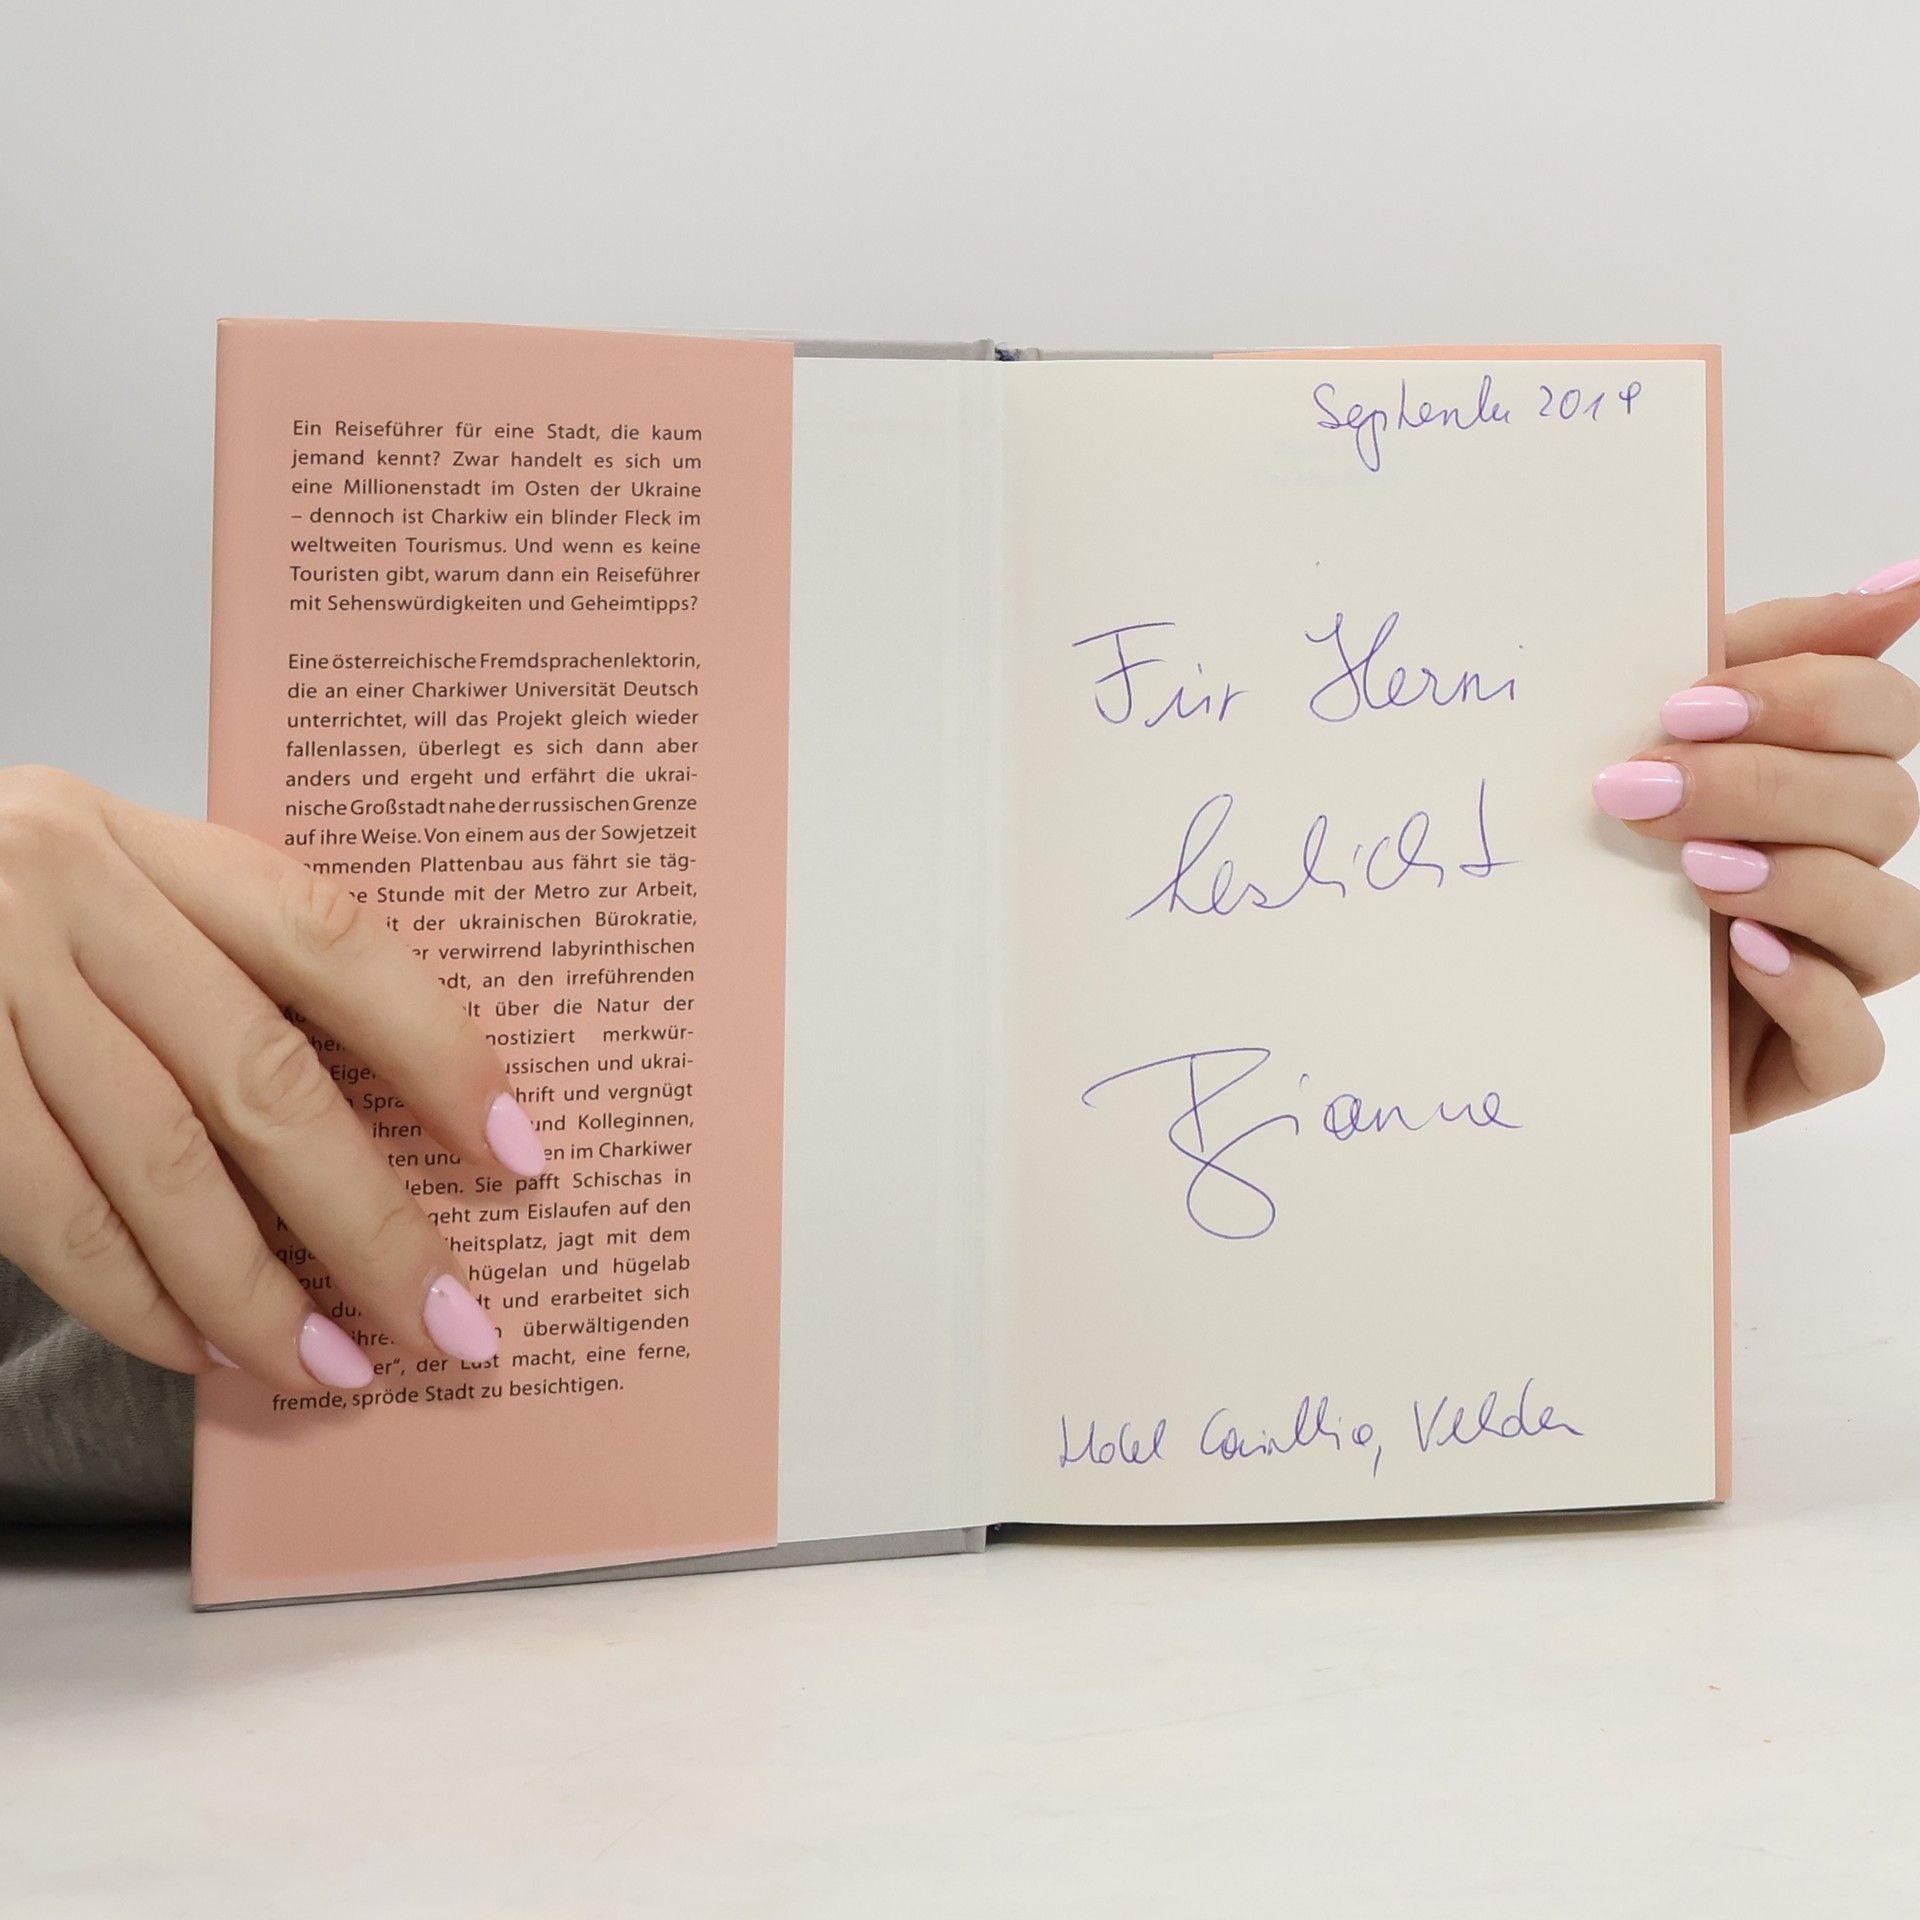 Ein Reiseführer für eine Stadt, die kaum
jemand kennt? Zwar handelt es sich um
eine Millionenstadt im Osten der Ukraine
– dennoch ist Charkiw ein blinder Fleck im
weltweiten Tourismus. Und wenn es keine
Touristen gibt, warum dann ein Reiseführer
mit Sehenswürdigkeiten und Geheimtipps?
Eine österreichische Fremdsprachenlektorin,
die an einer Charkiwer Universität Deutsch
unterrichtet, will das Projekt gleich wieder
fallenlassen, überlegt es sich dann aber
anders und ergeht und erfährt die ukrai-
nische Großstadt nahe der russischen Grenze
auf ihre Weise. Von einem aus der Sowjetzeit
Plattenbau aus fährt sie täg-
Stunde mit der Metro zur Arbeit,
der ukrainischen Bürokratie,
verwirrend labyrinthischen
an den irreführenden
über die Natur der
merkwür-
und ukrai-
und vergnügt
ihren und Kolleginnen,
im Charkiwer
Sie pafft Schischas in
geht zum Eislaufen auf den
jagt mit dem
hügelan und hügelab
und erarbeitet sich
überwältigenden
der Lust macht, eine ferne,
fremde, spröde Stadt zu besichtigen.
September 2019
Für Hermi
herzlichst
Hotel Carinthia, Velden